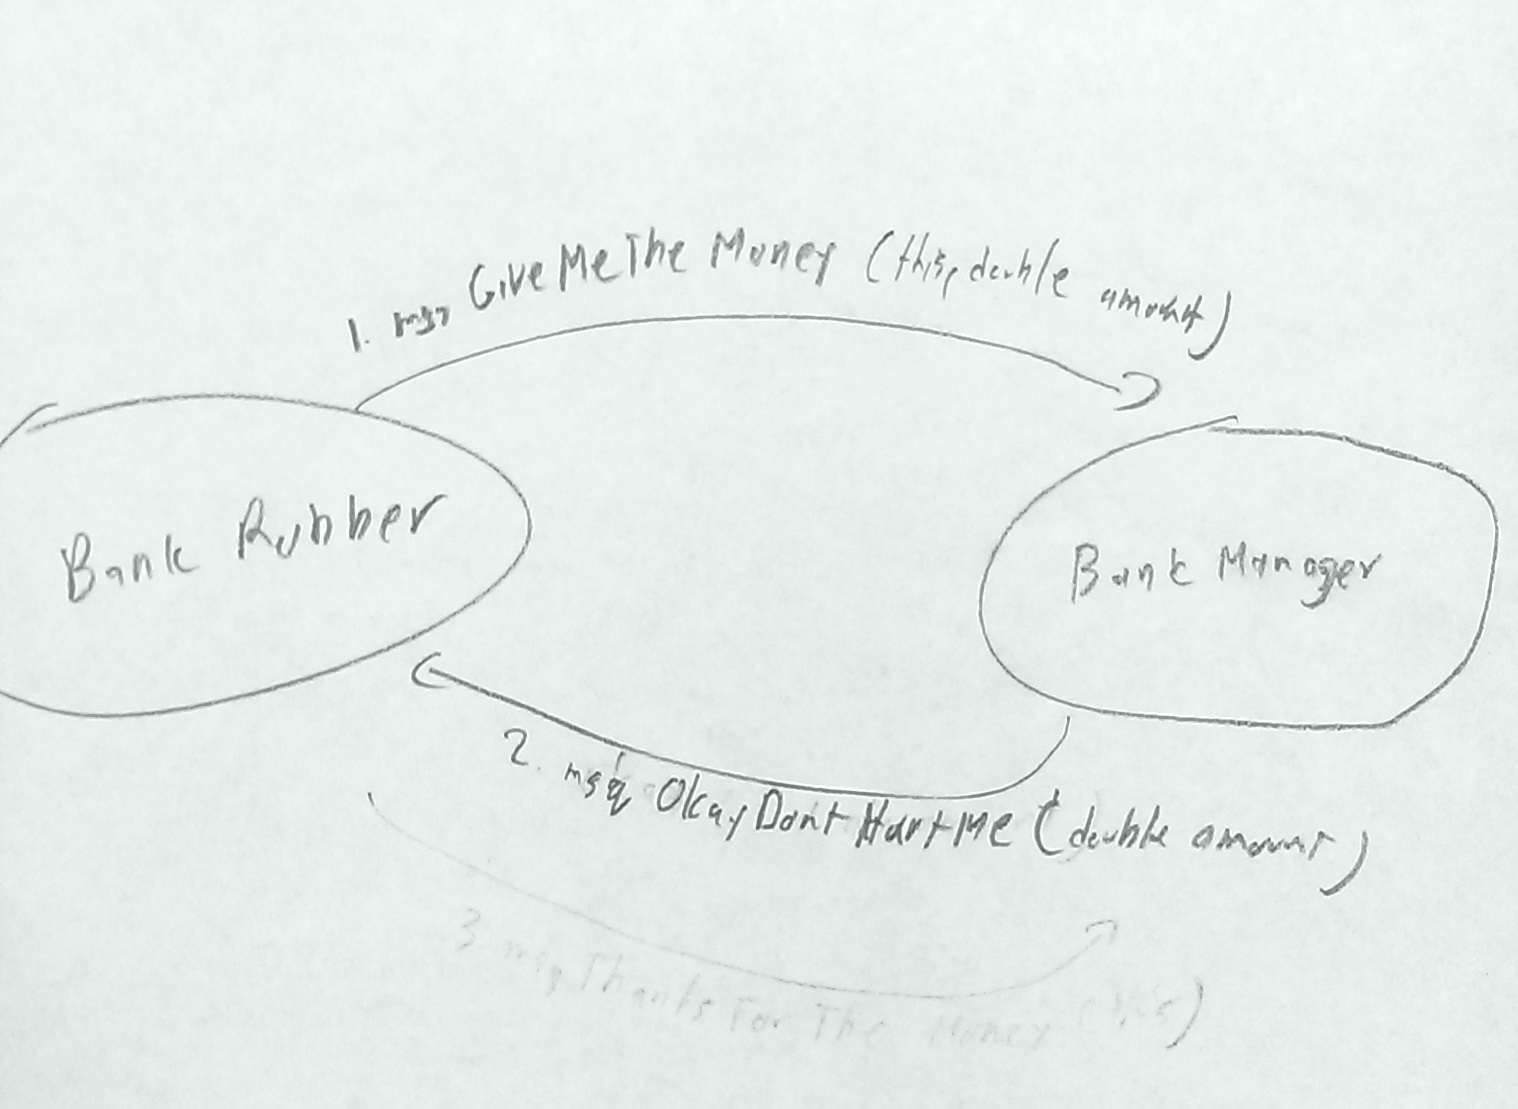 1. msg GiveMeTheMoney (this, double amount)
Bank Rubber
Bank Manager
2. msg OkayDontHurtMe (double amount)
3 msg ThanksForTheMoney (this)